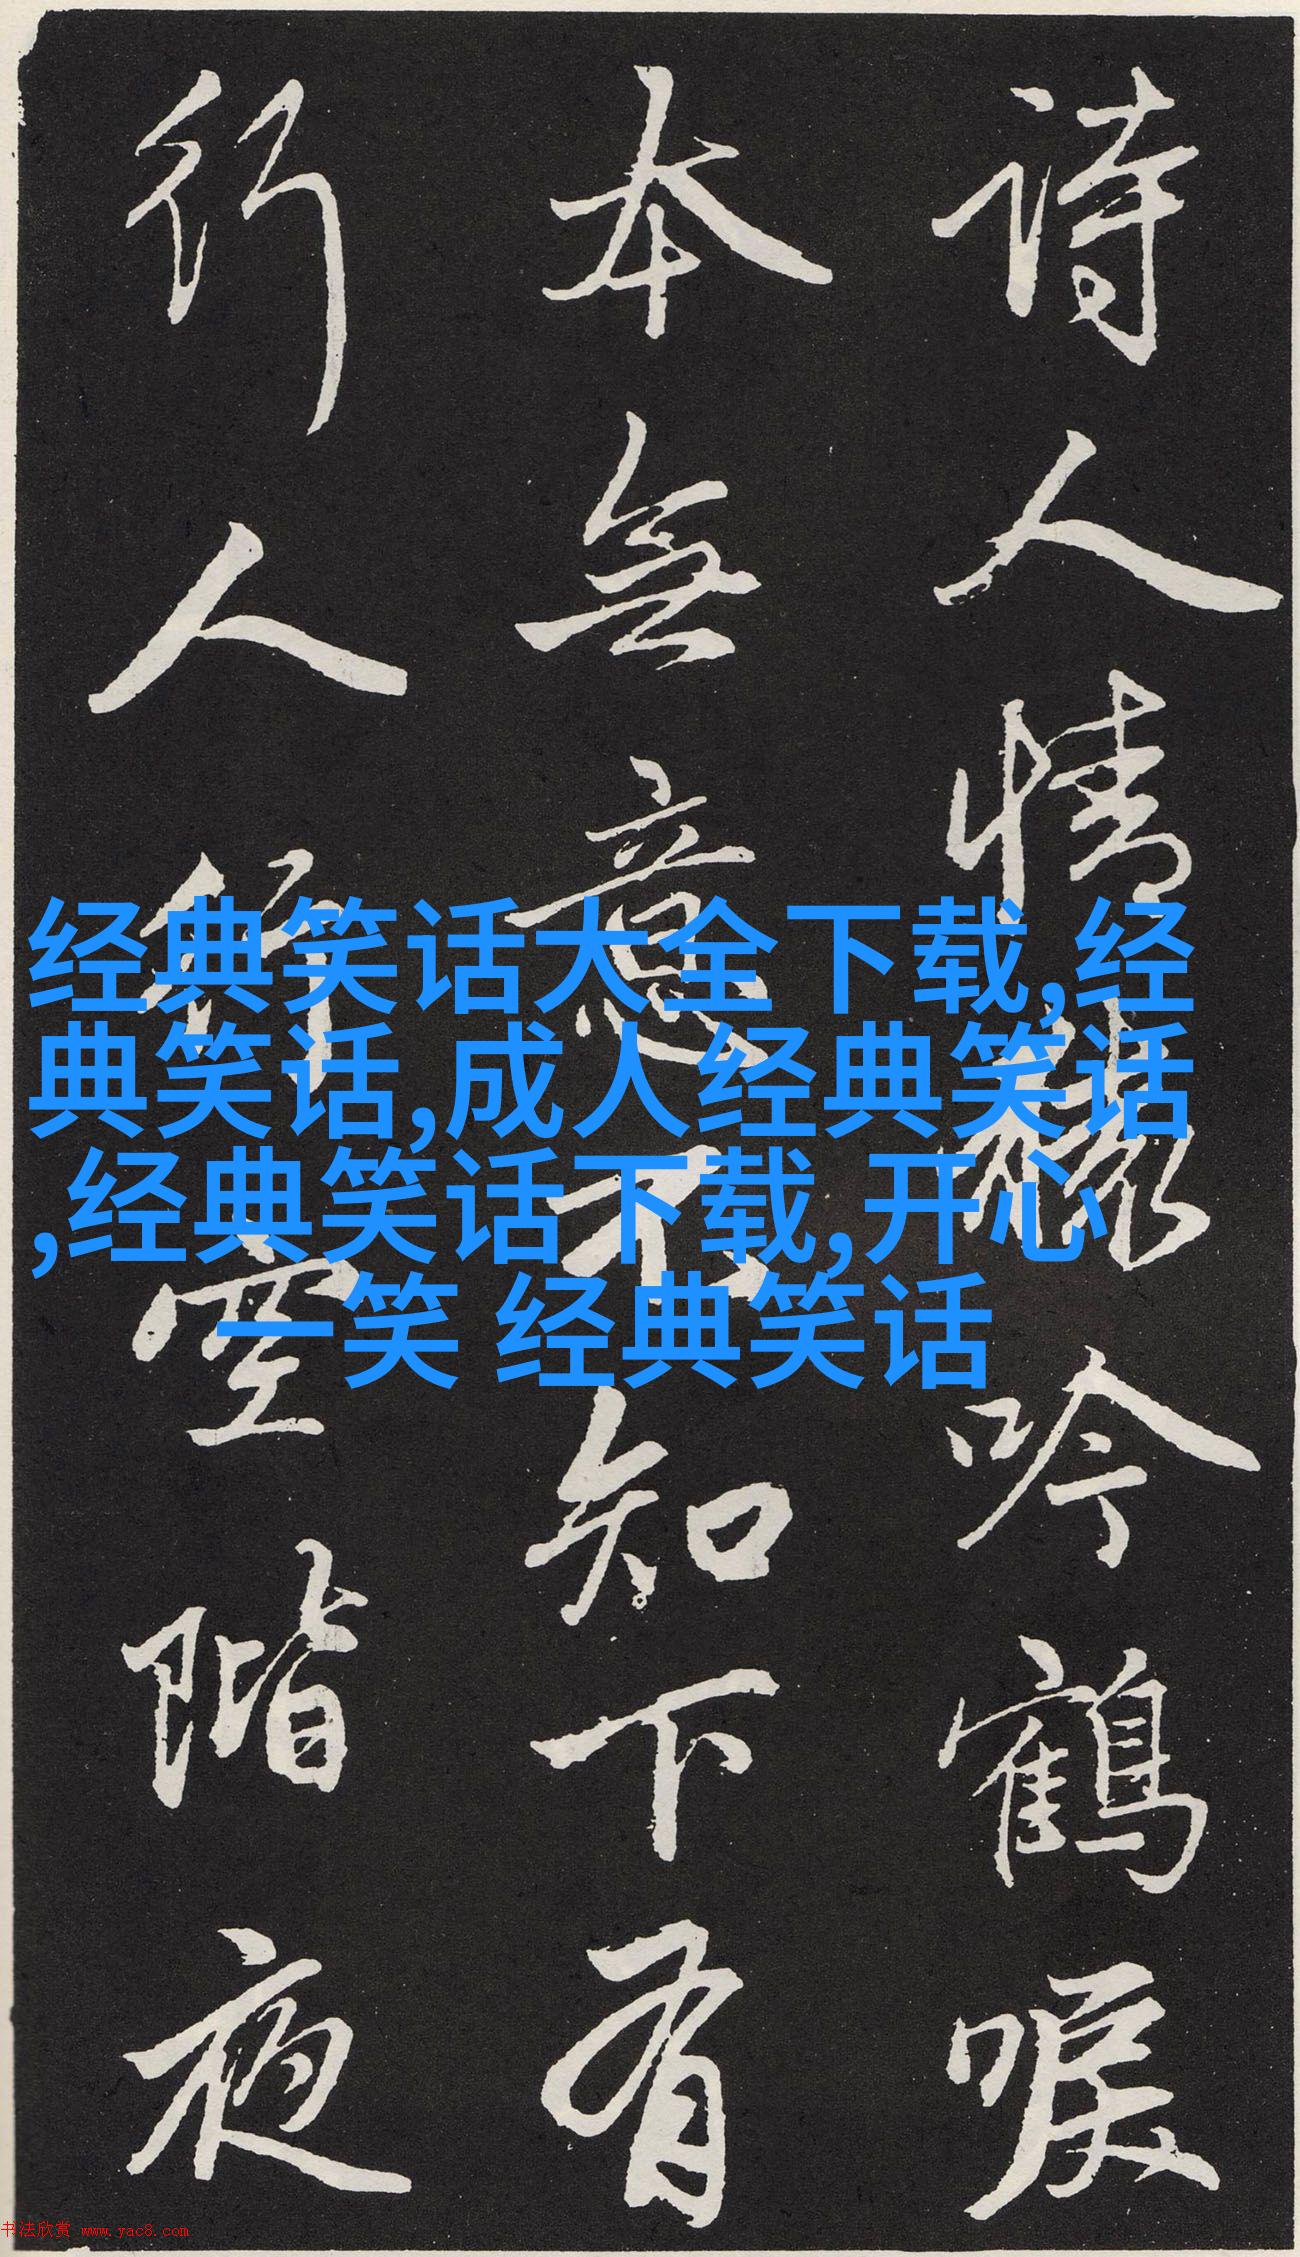 诗人情想吟鹤唳
本無意不知下有
行人行空階夜
经典笑话大全下载,经
典笑话,成人经典笑话
,经典笑话下载,开心
一笑 经典笑话
书法欣赏 www.yac8.com